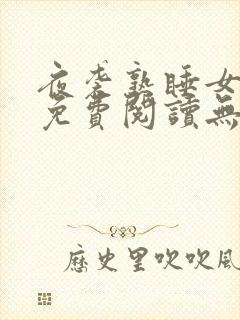 夜袭熟睡女
免費閱讀無
歷史里吹吹風